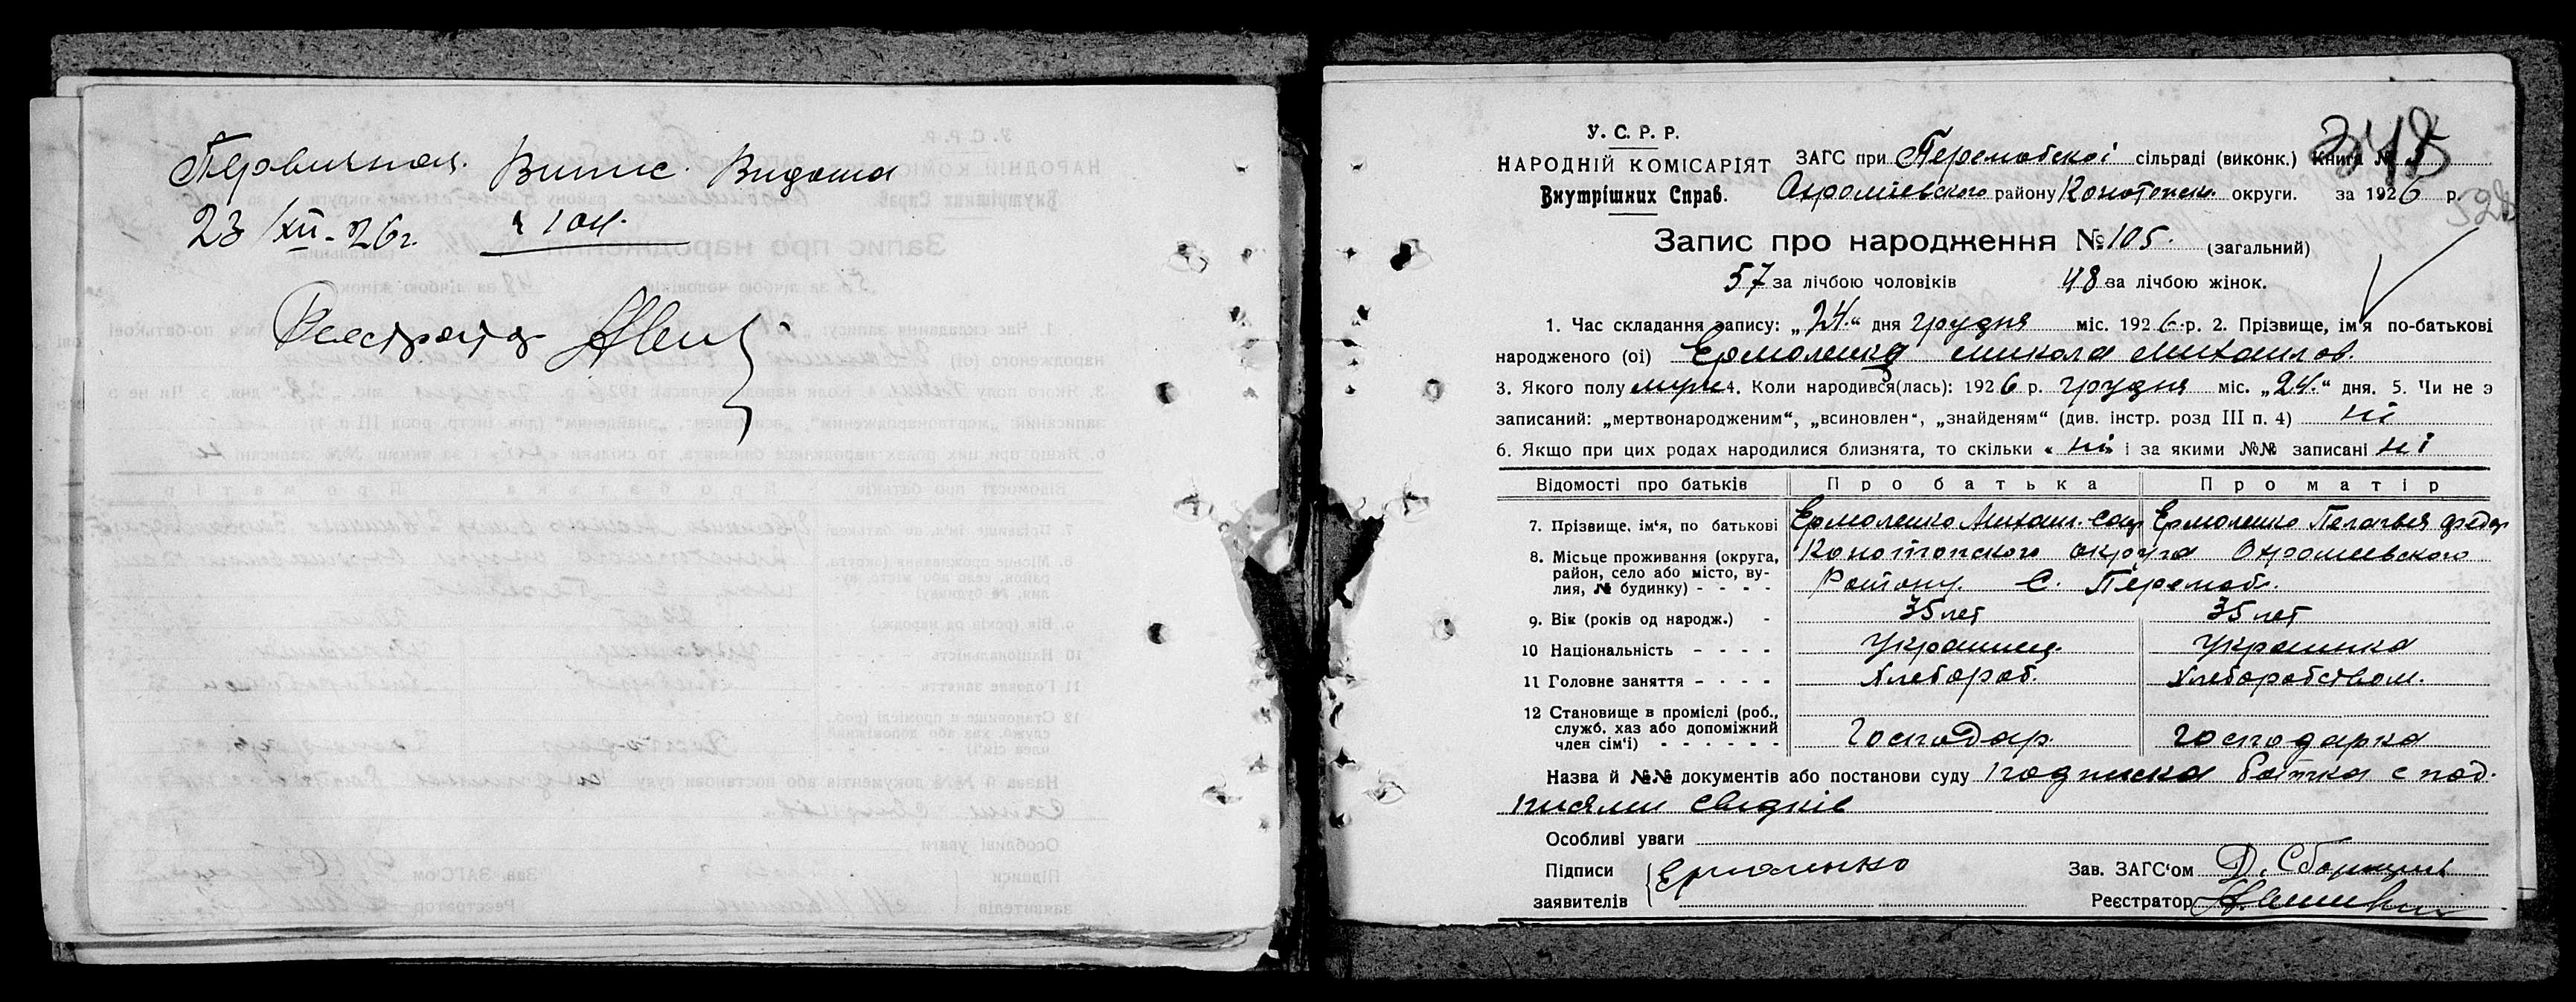 Первичная. Випис. Видана
23/XII-26г. № 104.
Реєстратор
У. С. Р. Р.
НАРОДНІЙ КОМІСАРІЯТ
Внутрішних Справ.
ЗАГС при сільраді (виконк.) Книга №
району Конотопско округи. за 1926 р.
Запис про народження № 105. (загальний)
57 за лічбою чоловіків 48 за лічбою жінок.
1. Час складання запису: „24.“ дня грудня міс. 1926 р. 2. Прізвище, ім'я по-батькові
народженого (ої) Ермоленко микола михаилов.
3. Якого полу муж 4. Коли народився(лась): 1926 р. грудня міс. „24.“ дня. 5. Чи не э
записаний: „мертвонародженим“, „всиновлен“, „знайденям“ (див. інстр. розд III п. 4) ні
6. Якщо при цих родах народилися близнята, то скільки « ні » і за якими №№ записані ні
Відомості про батьків Про батька Про матір
7. Прізвище, ім'я, по батькові Ермоленко Михаил. Ермоленко Пелагея Федор
8. Місьце проживання (округа, Конотопского округа
район, село або місто, ву- Району. С.
лия, № будинку) - - - -
9. Вік (років од народж.) - 35 лет 35 лет
10 Національність - - - - Украинец Украинка
11 Головне заняття - - - - Хлебороб. Хлеборобством.
12 Становище в проміслі (роб.,
служб. хаз або допоміжний
член сім'ї) - - - - - - Господар Господарка
Назва й №№ документів або постанови суду подписка батька с под-
писями свидків
Особливі уваги
Підписи Ермоленко Зав. ЗАГС'ом
заявителів Реєстратор